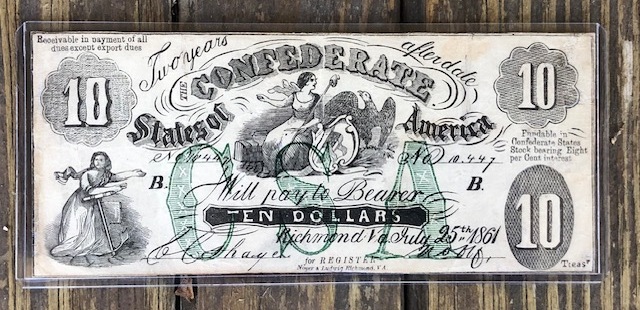 Receivable in payment of all
dues except export dues
Two years after date
10
THE CONFEDERATE
10
States of America
Fundable in
Confederate States
Stock bearing Eight
per Cent interest
No 10,447
B. Will pay to Bearer B.
CSA
TEN DOLLARS
10
Richmond Va July 25th 1861
for REGISTER
for Treasr
Hoyer & Ludwig Richmond, VA.